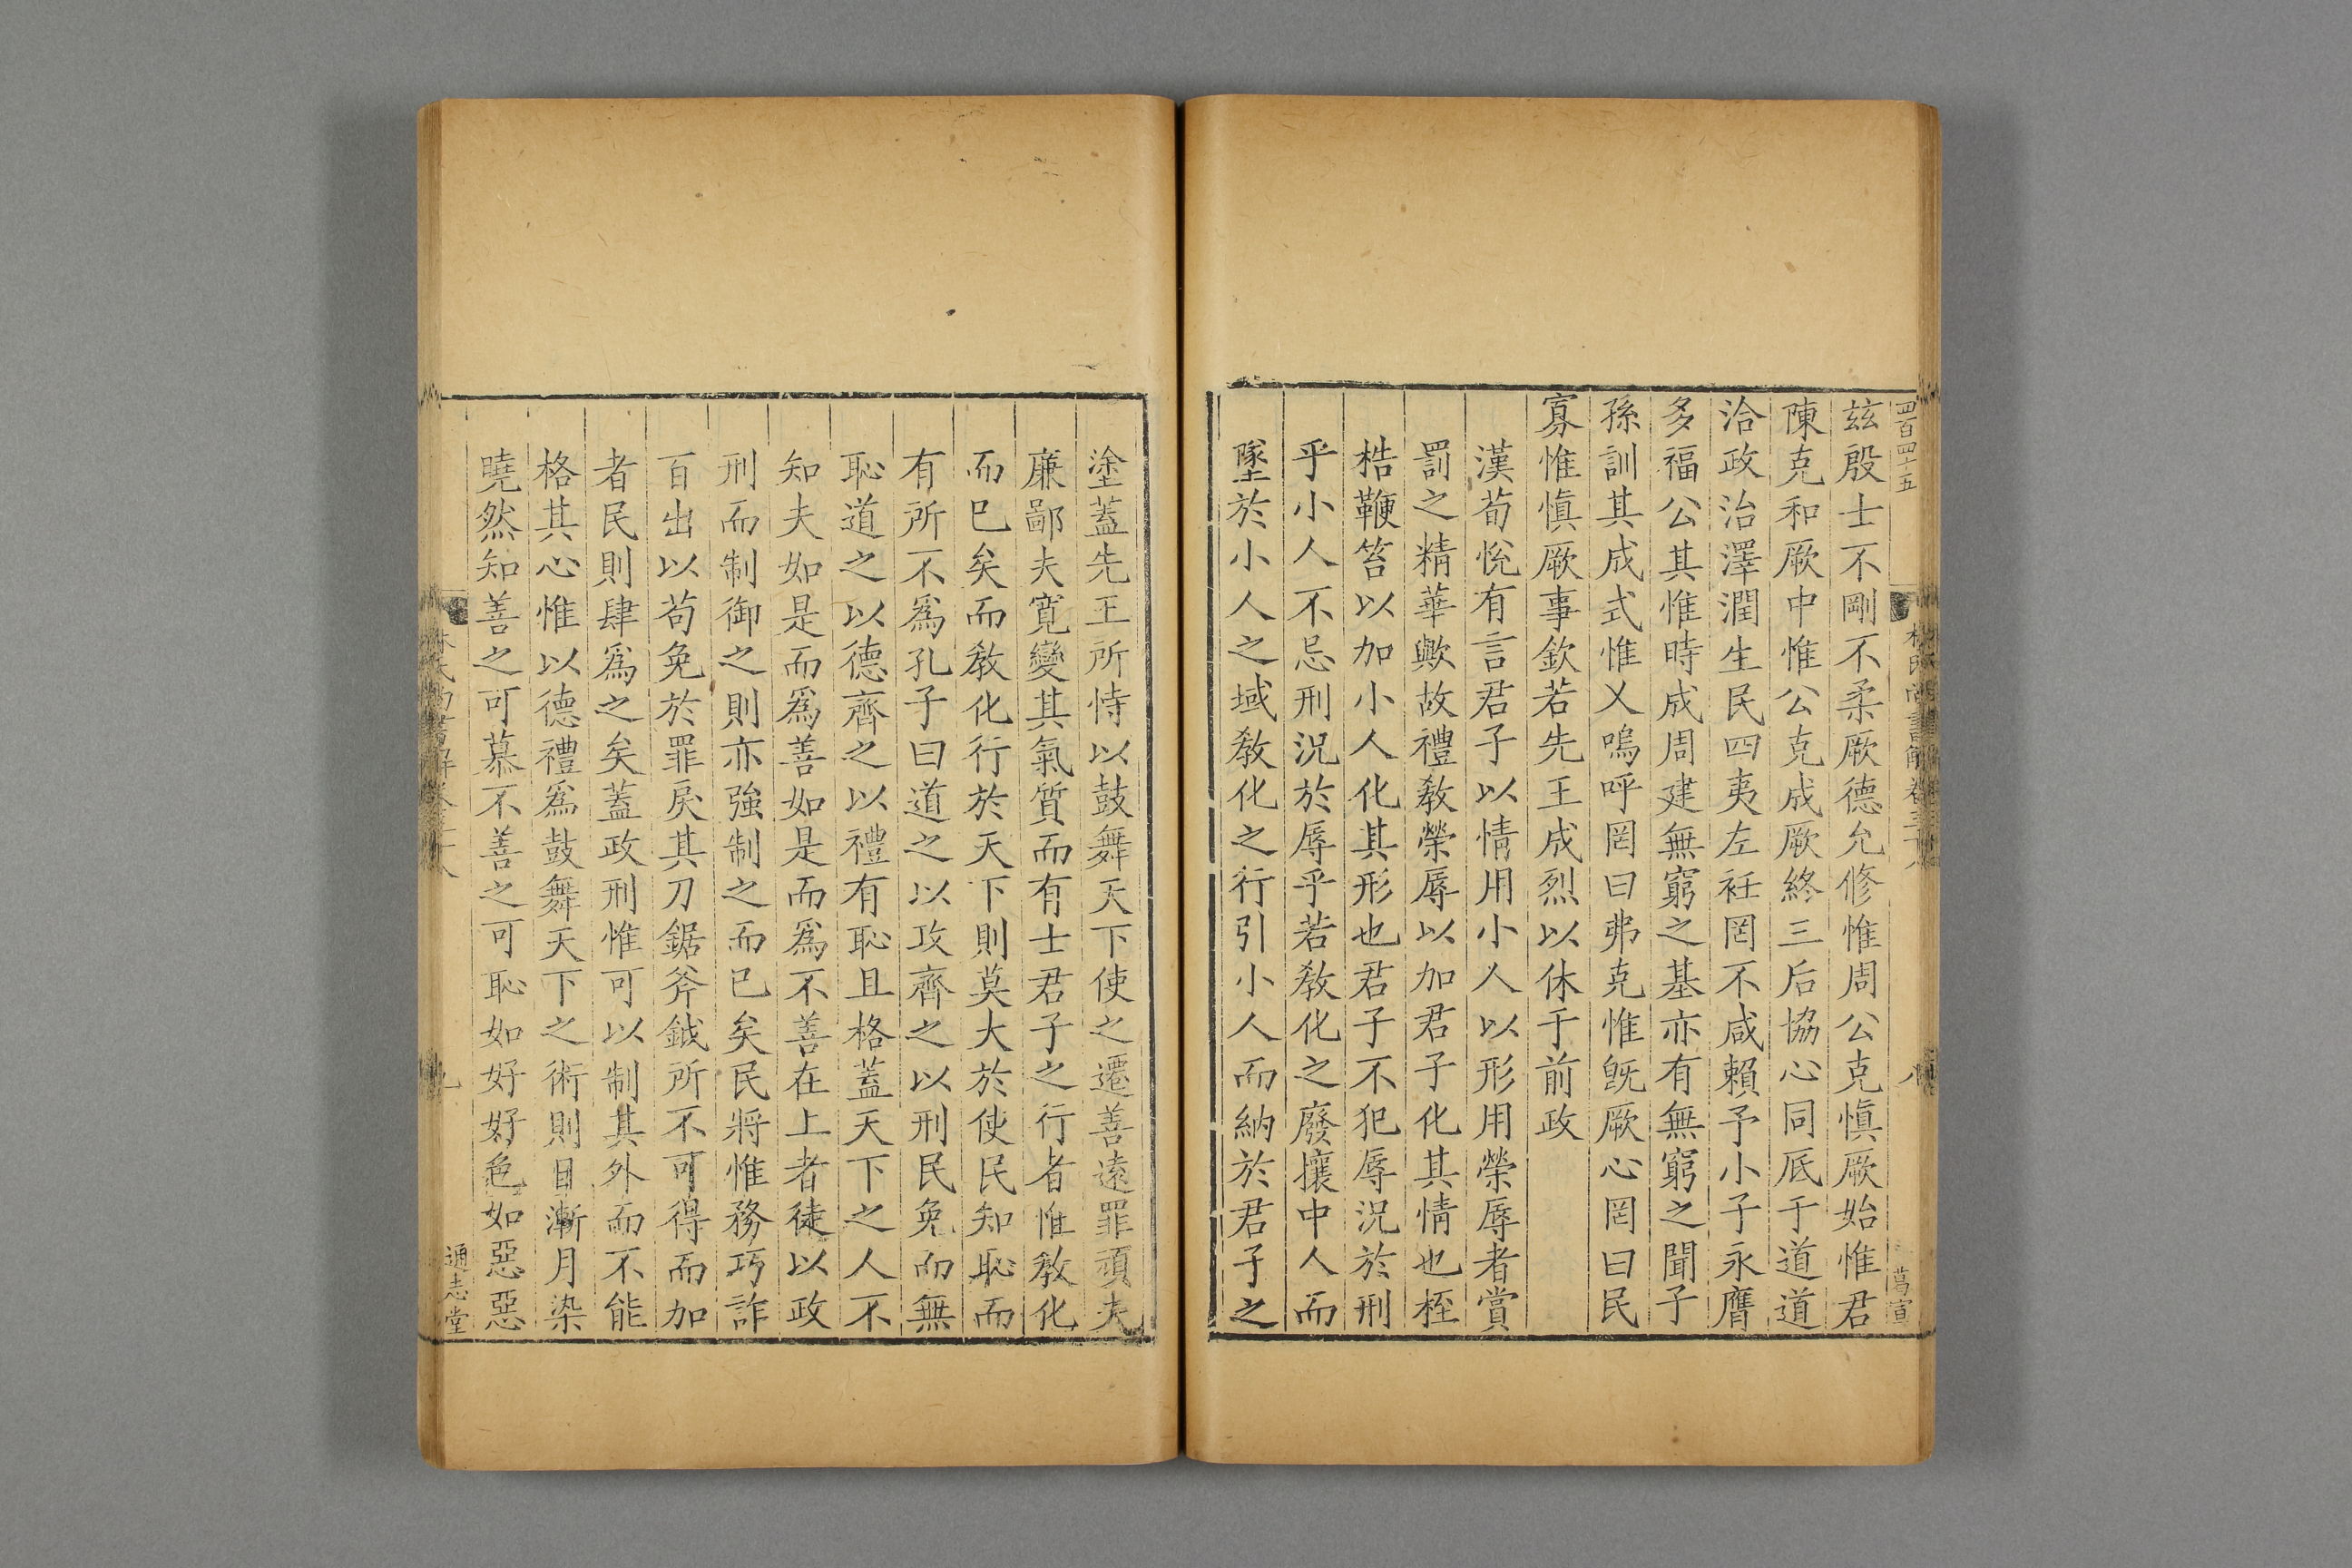 四百四十五
林氏尚書解卷三十八
八
葛宣
茲殷士不剛不柔厥德允修惟周公克愼厥始惟君
陳克和厥中惟公克成厥終三后協心同底于道道
洽政治澤潤生民四夷左衽罔不咸賴予小子永膺
多福公其惟時成周建無窮之基亦有無窮之聞子
孫訓其成式惟乂嗚呼罔曰弗克惟旣厥心罔曰民
寡惟愼厥事欽若先王成烈以休于前政
漢荀悅有言君子以情用小人以形用榮辱者賞
罰之精華歟故禮敎榮辱以加君子化其情也桎
梏鞭笞以加小人化其形也君子不犯辱況於刑
乎小人不忌刑況於辱乎若敎化之廢攘中人而
墜於小人之域敎化之行引小人而納於君子之
塗蓋先王所恃以鼓舞天下使之遷善遠罪頑夫
廉鄙夫寬變其氣質而有士君子之行者惟敎化
而已矣而敎化行於天下則莫大於使民知恥而
有所不爲孔子曰道之以政齊之以刑民免而無
恥道之以德齊之以禮有恥且格蓋天下之人不
知夫如是而爲善如是而爲不善在上者徒以政
刑而制御之則亦強制之而已矣民將惟務巧詐
百出以苟免於罪戾其刀鋸斧鉞所不可得而加
者民則肆爲之矣蓋政刑惟可以制其外而不能
格其心惟以德禮爲鼓舞天下之術則日漸月染
曉然知善之可慕不善之可恥如好好色如惡惡
林氏尚書解卷三十八
九
通志堂